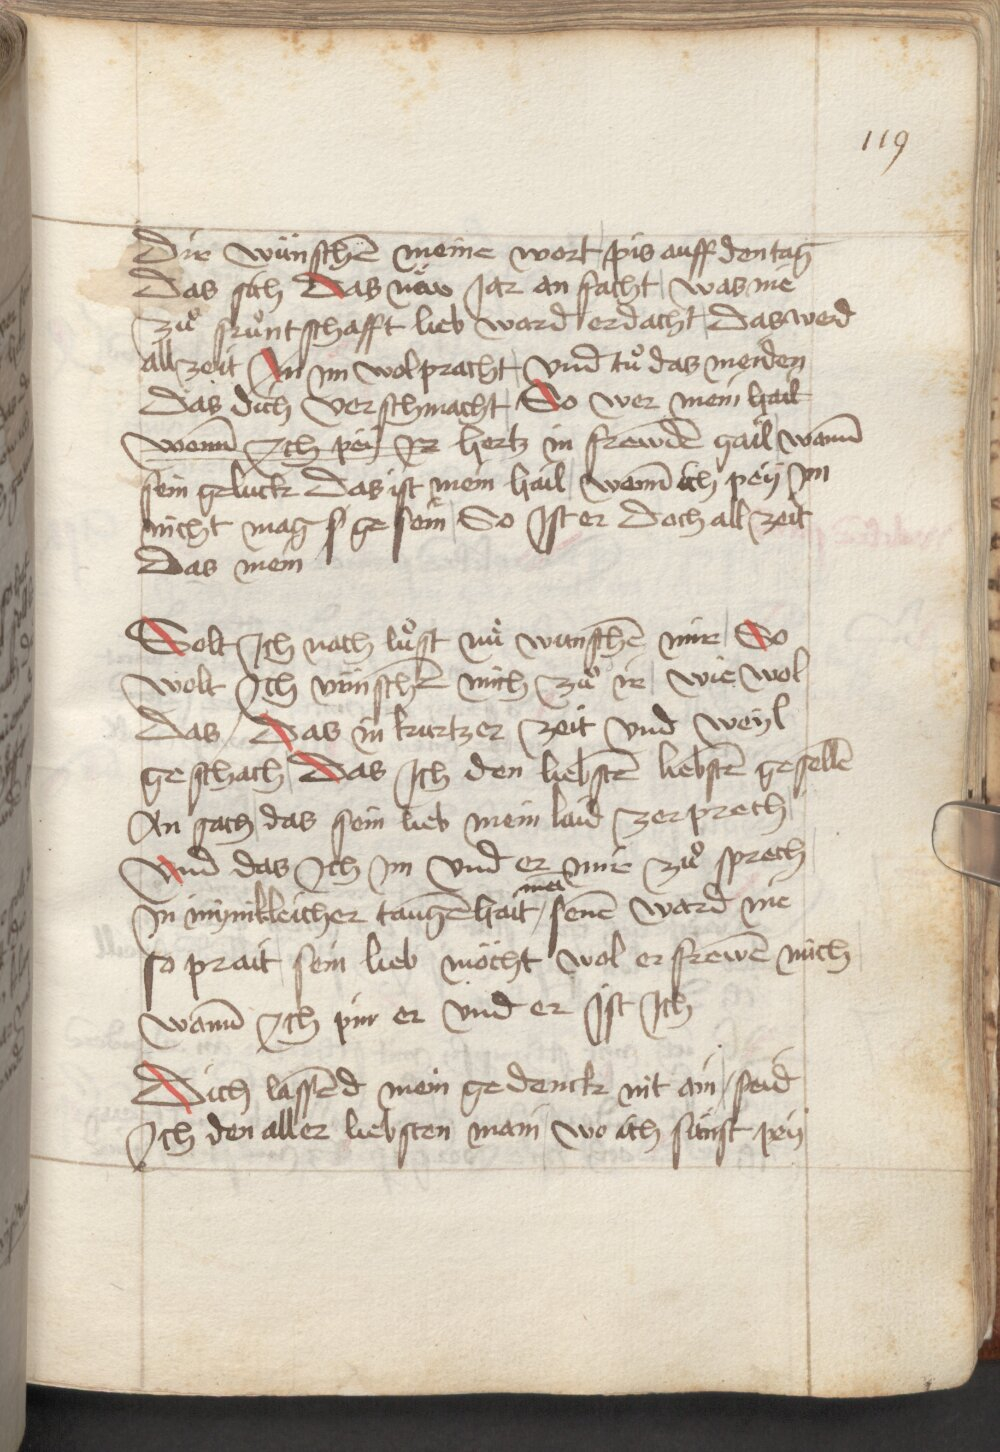 119
Dir wünschē meine wort pis auff den tag
Das sich Das näw Jar an facht was nie
zuͦ fruͤntschafft lieb ward erdacht Das werd
all zeit An im wolpracht vnd tuͦ das meiden
Das dich verschmacht So wer mein hail
wenn̄ Ich peÿ Ir hertz in frewdē gail wann̄
sein geluck das ist mein hail wenn̄ ich peÿ Im
nicht mag ge sein So Ist er doch all zeit
Das mein
Solt Ich nach luͦst nuͦ wunschē mir So
wolt Ich wünschē mich zuͦ ir wie wol
Das Das in kurtzer zeit vnd weÿl
geschach Das Ich den liebstē liebstē gesellē
An sach das sein lieb mein laid zerprech
Vnd das Ich im vnd er mir zuͦ sprech
In mynikleicher taugēhait senē ward nie
so prait sein lieb möcht wol erfrewē mich
wann̄ Ich pin er vnd er Ist Ich
Dich lassēd mein gedenck nit ain seid
Ich den aller liebsten main wo ich sünst peÿ